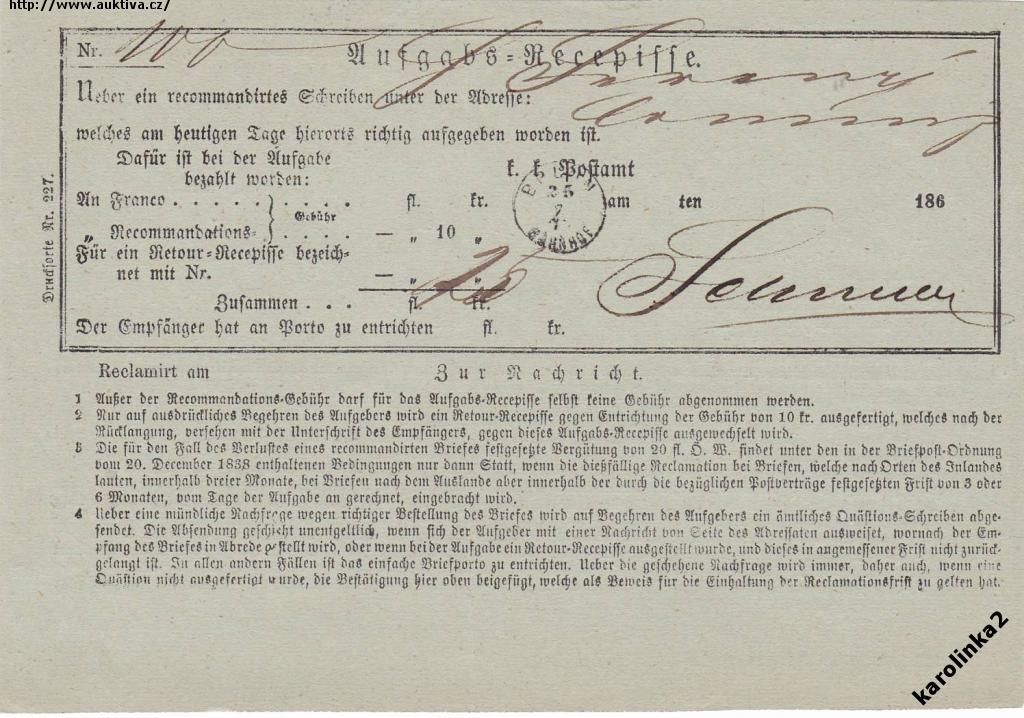 http://www.auktiva.cz/
Nr. 100
Aufgabs-Recepisse.
Ueber ein recommandirtes Schreiben unter der Adresse:
welches am heutigen Tage hierorts richtig aufgegeben worden ist.
Dafür ist bei der Aufgabe
bezahlt worden:
k. k. Postamt
BRÜNN
25
7
BAHNHOF
An Franco . . . . . . . . . fl. kr. am ten 186
„ Recommandations- Gebühr . . . . — „ 10 „
Für ein Retour-Recepisse bezeich-
net mit Nr. — „ „
Zusammen . . . fl. kr.
Der Empfänger hat an Porto zu entrichten fl. kr.
Drucksorte Nr. 227.
Reclamirt am
Zur Nachricht.
1 Außer der Recommandations-Gebühr darf für das Aufgabs-Recepisse selbst keine Gebühr abgenommen werden.
2 Nur auf ausdrückliches Begehren des Aufgebers wird ein Retour-Recepisse gegen Entrichtung der Gebühr von 10 kr. ausgefertigt, welches nach der
Rücklangung, versehen mit der Unterschrift des Empfängers, gegen dieses Aufgabs-Recepisse ausgewechselt wird.
3 Die für den Fall des Verlustes eines recommandirten Briefes festgesetzte Vergütung von 20 fl. Ö. W. findet unter den in der Briefpost-Ordnung
vom 20. December 1838 enthaltenen Bedingungen nur dann Statt, wenn die dießfällige Reclamation bei Briefen, welche nach Orten des Inlandes
lauten, innerhalb dreier Monate, bei Briefen nach dem Auslande aber innerhalb der durch die bezüglichen Postverträge festgesetzten Frist von 3 oder
6 Monaten, vom Tage der Aufgabe an gerechnet, eingebracht wird.
4 Ueber eine mündliche Nachfrage wegen richtiger Bestellung des Briefes wird auf Begehren des Aufgebers ein ämtliches Quästions-Schreiben abge-
sendet. Die Absendung geschieht unentgeltlich, wenn sich der Aufgeber mit einer Nachricht von Seite des Adressaten ausweiset, wornach der Em-
pfang des Briefes in Abrede gestellt wird, oder wenn bei der Aufgabe ein Retour-Recepisse ausgestellt wurde, und dieses in angemessener Frist nicht zurück-
gelangt ist. In allen andern Fällen ist das einfache Briefporto zu entrichten. Ueber die geschehene Nachfrage wird immer, daher auch, wenn eine
Quästion nicht ausgefertigt wurde, die Bestätigung hier oben beigefügt, welche als Beweis für die Einhaltung der Reclamationsfrist zu gelten hat.
karolinka2